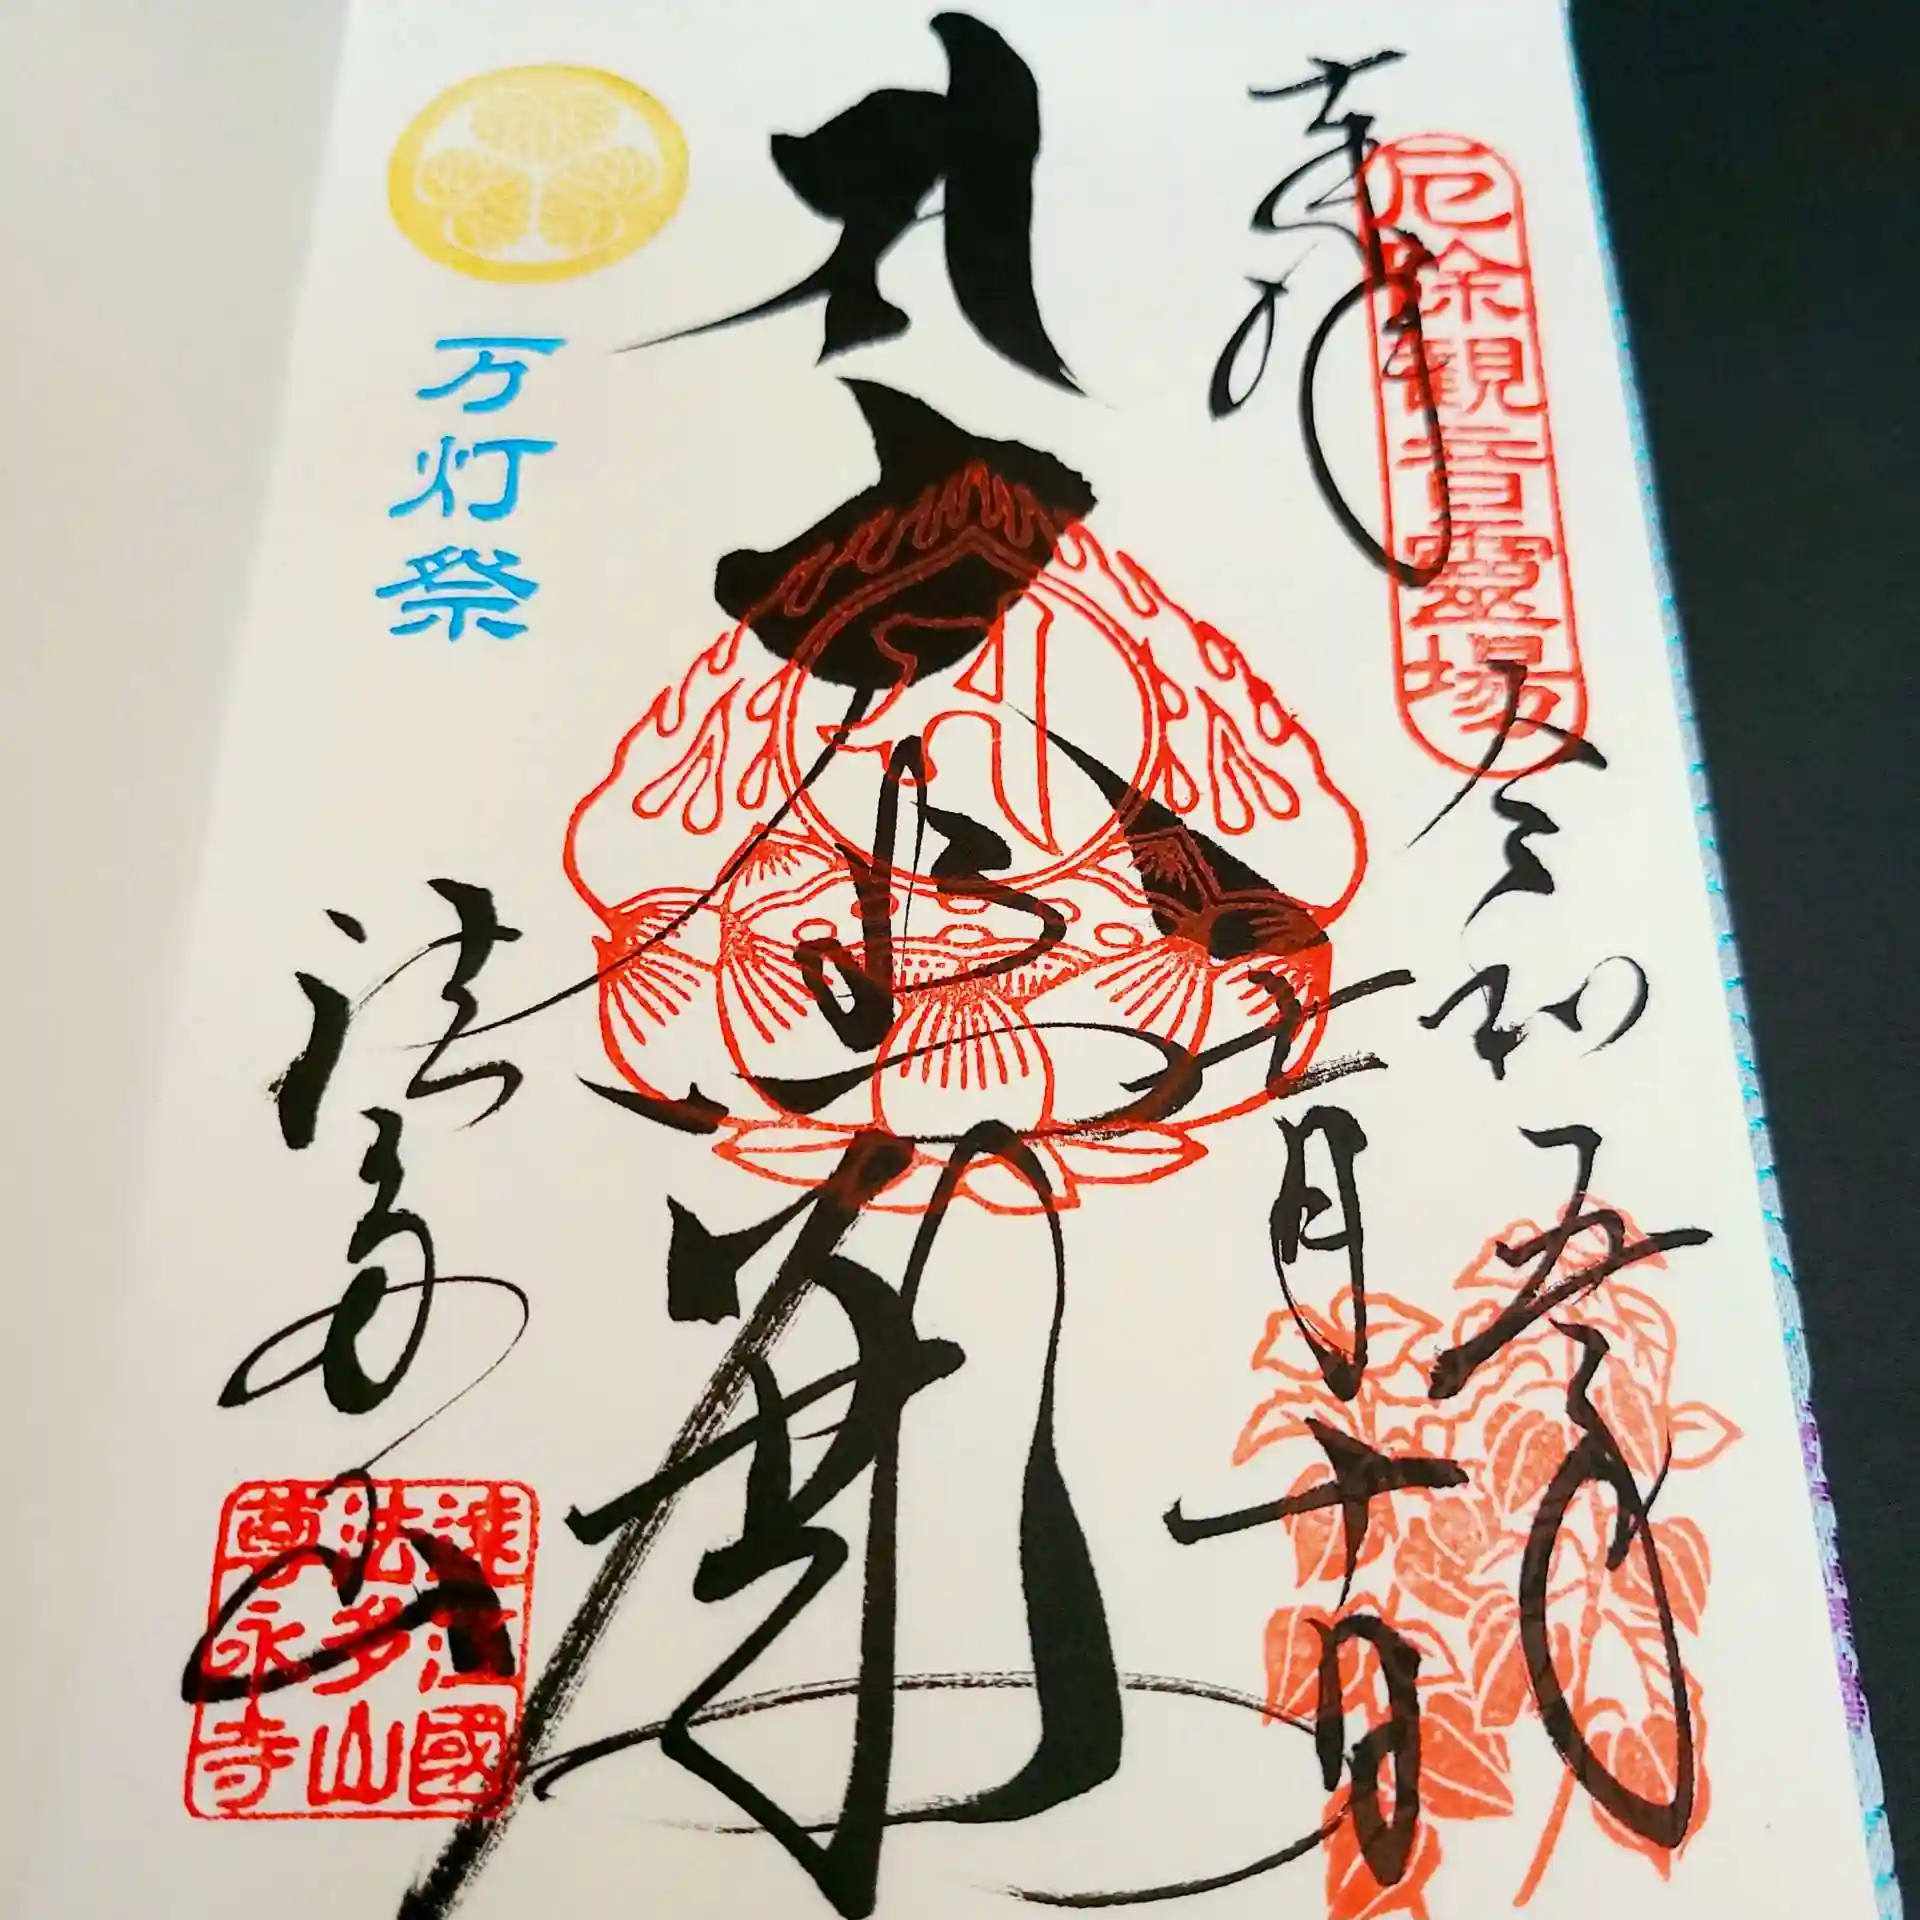 奉拝
厄除観音霊場
令和五年
七月十日
大悲閣
万灯祭
法多山
遠江國
法多山
尊永寺